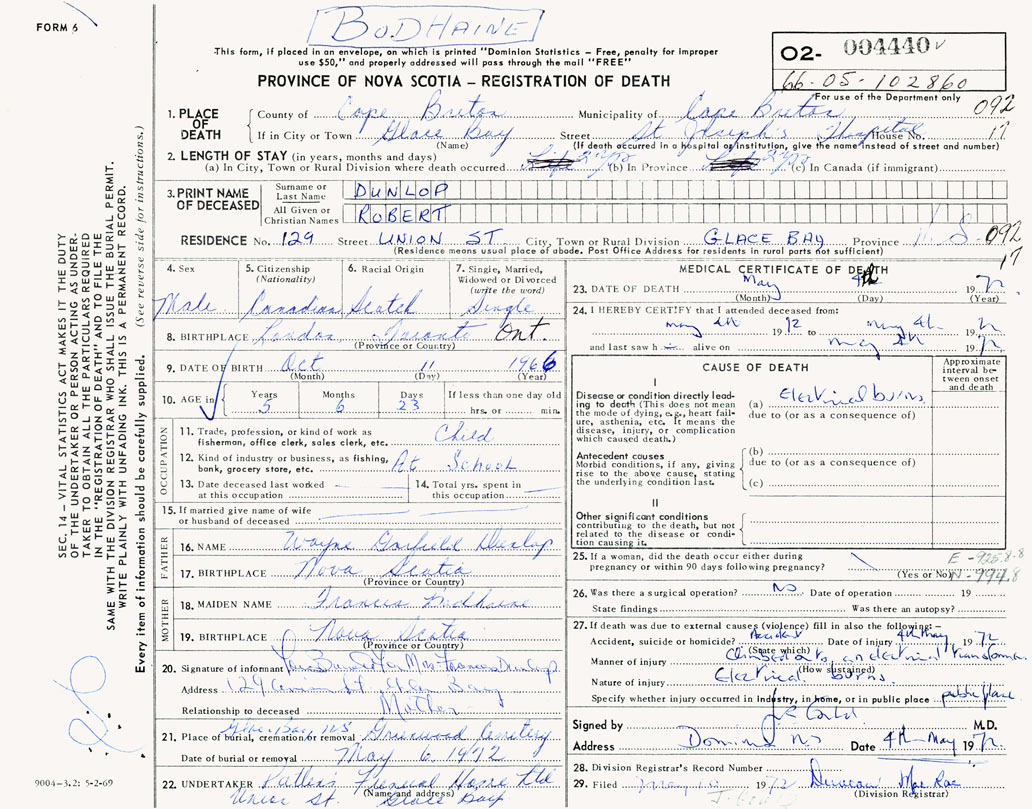 FORM 6
BODHAINE
This form, if placed in an envelope, on which is printed "Dominion Statistics – Free, penalty for improper
use $50," and properly addressed will pass through the mail "FREE"
PROVINCE OF NOVA SCOTIA – REGISTRATION OF DEATH
O2- 004440
66-05-102860
For use of the Department only
1. PLACE OF DEATH
County of Cape Breton Municipality of Cape Breton 092
If in City or Town Glace Bay Street St Joseph's Hospital House No. 17
(Name) (If death occurred in a hospital or institution, give the name instead of street and number)
2. LENGTH OF STAY (in years, months and days)
(a) In City, Town or Rural Division where death occurred (b) In Province (c) In Canada (if immigrant)
3. PRINT NAME OF DECEASED
Surname or Last Name DUNLOP
All Given or Christian Names ROBERT
RESIDENCE No. 129 Street UNION ST City, Town or Rural Division GLACE BAY Province N S 092
(Residence means usual place of abode. Post Office Address for residents in rural parts not sufficient) 17
4. Sex
Male
5. Citizenship
(Nationality)
Canadian
6. Racial Origin
Scotch
7. Single, Married,
Widowed or Divorced
(write the word)
Single
8. BIRTHPLACE London, Ont.
(Province or Country)
9. DATE OF BIRTH Oct 11 1966
(Month) (Day) (Year)
10. AGE in
Years Months Days If less than one day old
5 6 23 hrs. or min.
OCCUPATION
11. Trade, profession, or kind of work as
fisherman, office clerk, sales clerk, etc. Child
12. Kind of industry or business, as fishing,
bank, grocery store, etc. At School
13. Date deceased last worked
at this occupation
14. Total yrs. spent in
this occupation
15. If married give name of wife
or husband of deceased
FATHER
16. NAME Wayne Garfield Dunlop
17. BIRTHPLACE Nova Scotia
(Province or Country)
MOTHER
18. MAIDEN NAME Francis Bodhaine
19. BIRTHPLACE Nova Scotia
(Province or Country)
20. Signature of informant for Mrs Frances Dunlop
Address 129 Union St. Glace Bay
Relationship to deceased Mother
Glace Bay NS
21. Place of burial, cremation or removal Greenwood Cemetery
Date of burial or removal May 6, 1972
22. UNDERTAKER Patten's Funeral Home Ltd
(Name and address)
Union St. Glace Bay
MEDICAL CERTIFICATE OF DEATH
23. DATE OF DEATH May 4th 1972
(Month) (Day) (Year)
24. I HEREBY CERTIFY that I attended deceased from:
May 4th 1972 to May 4th 1972
and last saw h im alive on May 4th 1972
CAUSE OF DEATH
Approximate interval between onset and death
I
Disease or condition directly leading
to death (This does not mean
the mode of dying, e.g., heart failure,
asthenia, etc. It means the
disease, injury, or complication
which caused death.)
(a) Electrical burns
due to (or as a consequence of)
Antecedent causes
Morbid conditions, if any, giving
rise to the above cause, stating
the underlying condition last.
(b)
due to (or as a consequence of)
(c)
II
Other significant conditions
contributing to the death, but not
related to the disease or condition
causing it.
25. If a woman, did the death occur either during
pregnancy or within 90 days following pregnancy?
(Yes or No)
E-925.8
N-994.8
26. Was there a surgical operation? No Date of operation 19
State findings Was there an autopsy?
27. If death was due to external causes (violence) fill in also the following:–
Accident, suicide or homicide? Accident Date of injury 4th May 1972
(State which)
Manner of injury Climbed onto an electrical transformer
(How sustained)
Nature of injury Electrical burns
Specify whether injury occurred in industry, in home, or in public place public place
Signed by M.D.
Address Dominion NS Date 4th May 1972
28. Division Registrar's Record Number
29. Filed May 1972 Duncan MacRae
(Division Registrar)
SEC. 14 – VITAL STATISTICS ACT MAKES IT THE DUTY
OF THE UNDERTAKER OR PERSON ACTING AS UNDERTAKER
TO OBTAIN ALL THE PARTICULARS REQUIRED
IN THE "REGISTRATION OF DEATH" AND TO FILE THE
SAME WITH THE DIVISION REGISTRAR WHO SHALL ISSUE THE BURIAL PERMIT.
WRITE PLAINLY WITH UNFADING INK. THIS IS A PERMANENT RECORD.
Every item of information should be carefully supplied. (See reverse side for instructions.)
9004-3.2: 5-2-69